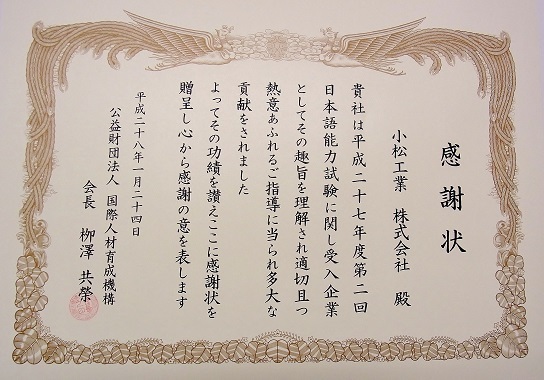 感謝状
小松工業 株式会社 殿
貴社は平成二十七年度第二回
日本語能力試験に関し受入企業
としてその趣旨を理解され適切且つ
熱意あふれるご指導に当られ多大な
貢献をされました
よってその功績を讃えここに感謝状を
贈呈し心から感謝の意を表します
平成二十八年一月二十四日
公益財団法人 国際人材育成機構
会長 栁澤 共榮